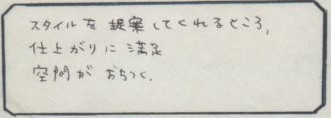 スタイルを提案してくれるところ,
仕上がりに満足
空間がおちつく.